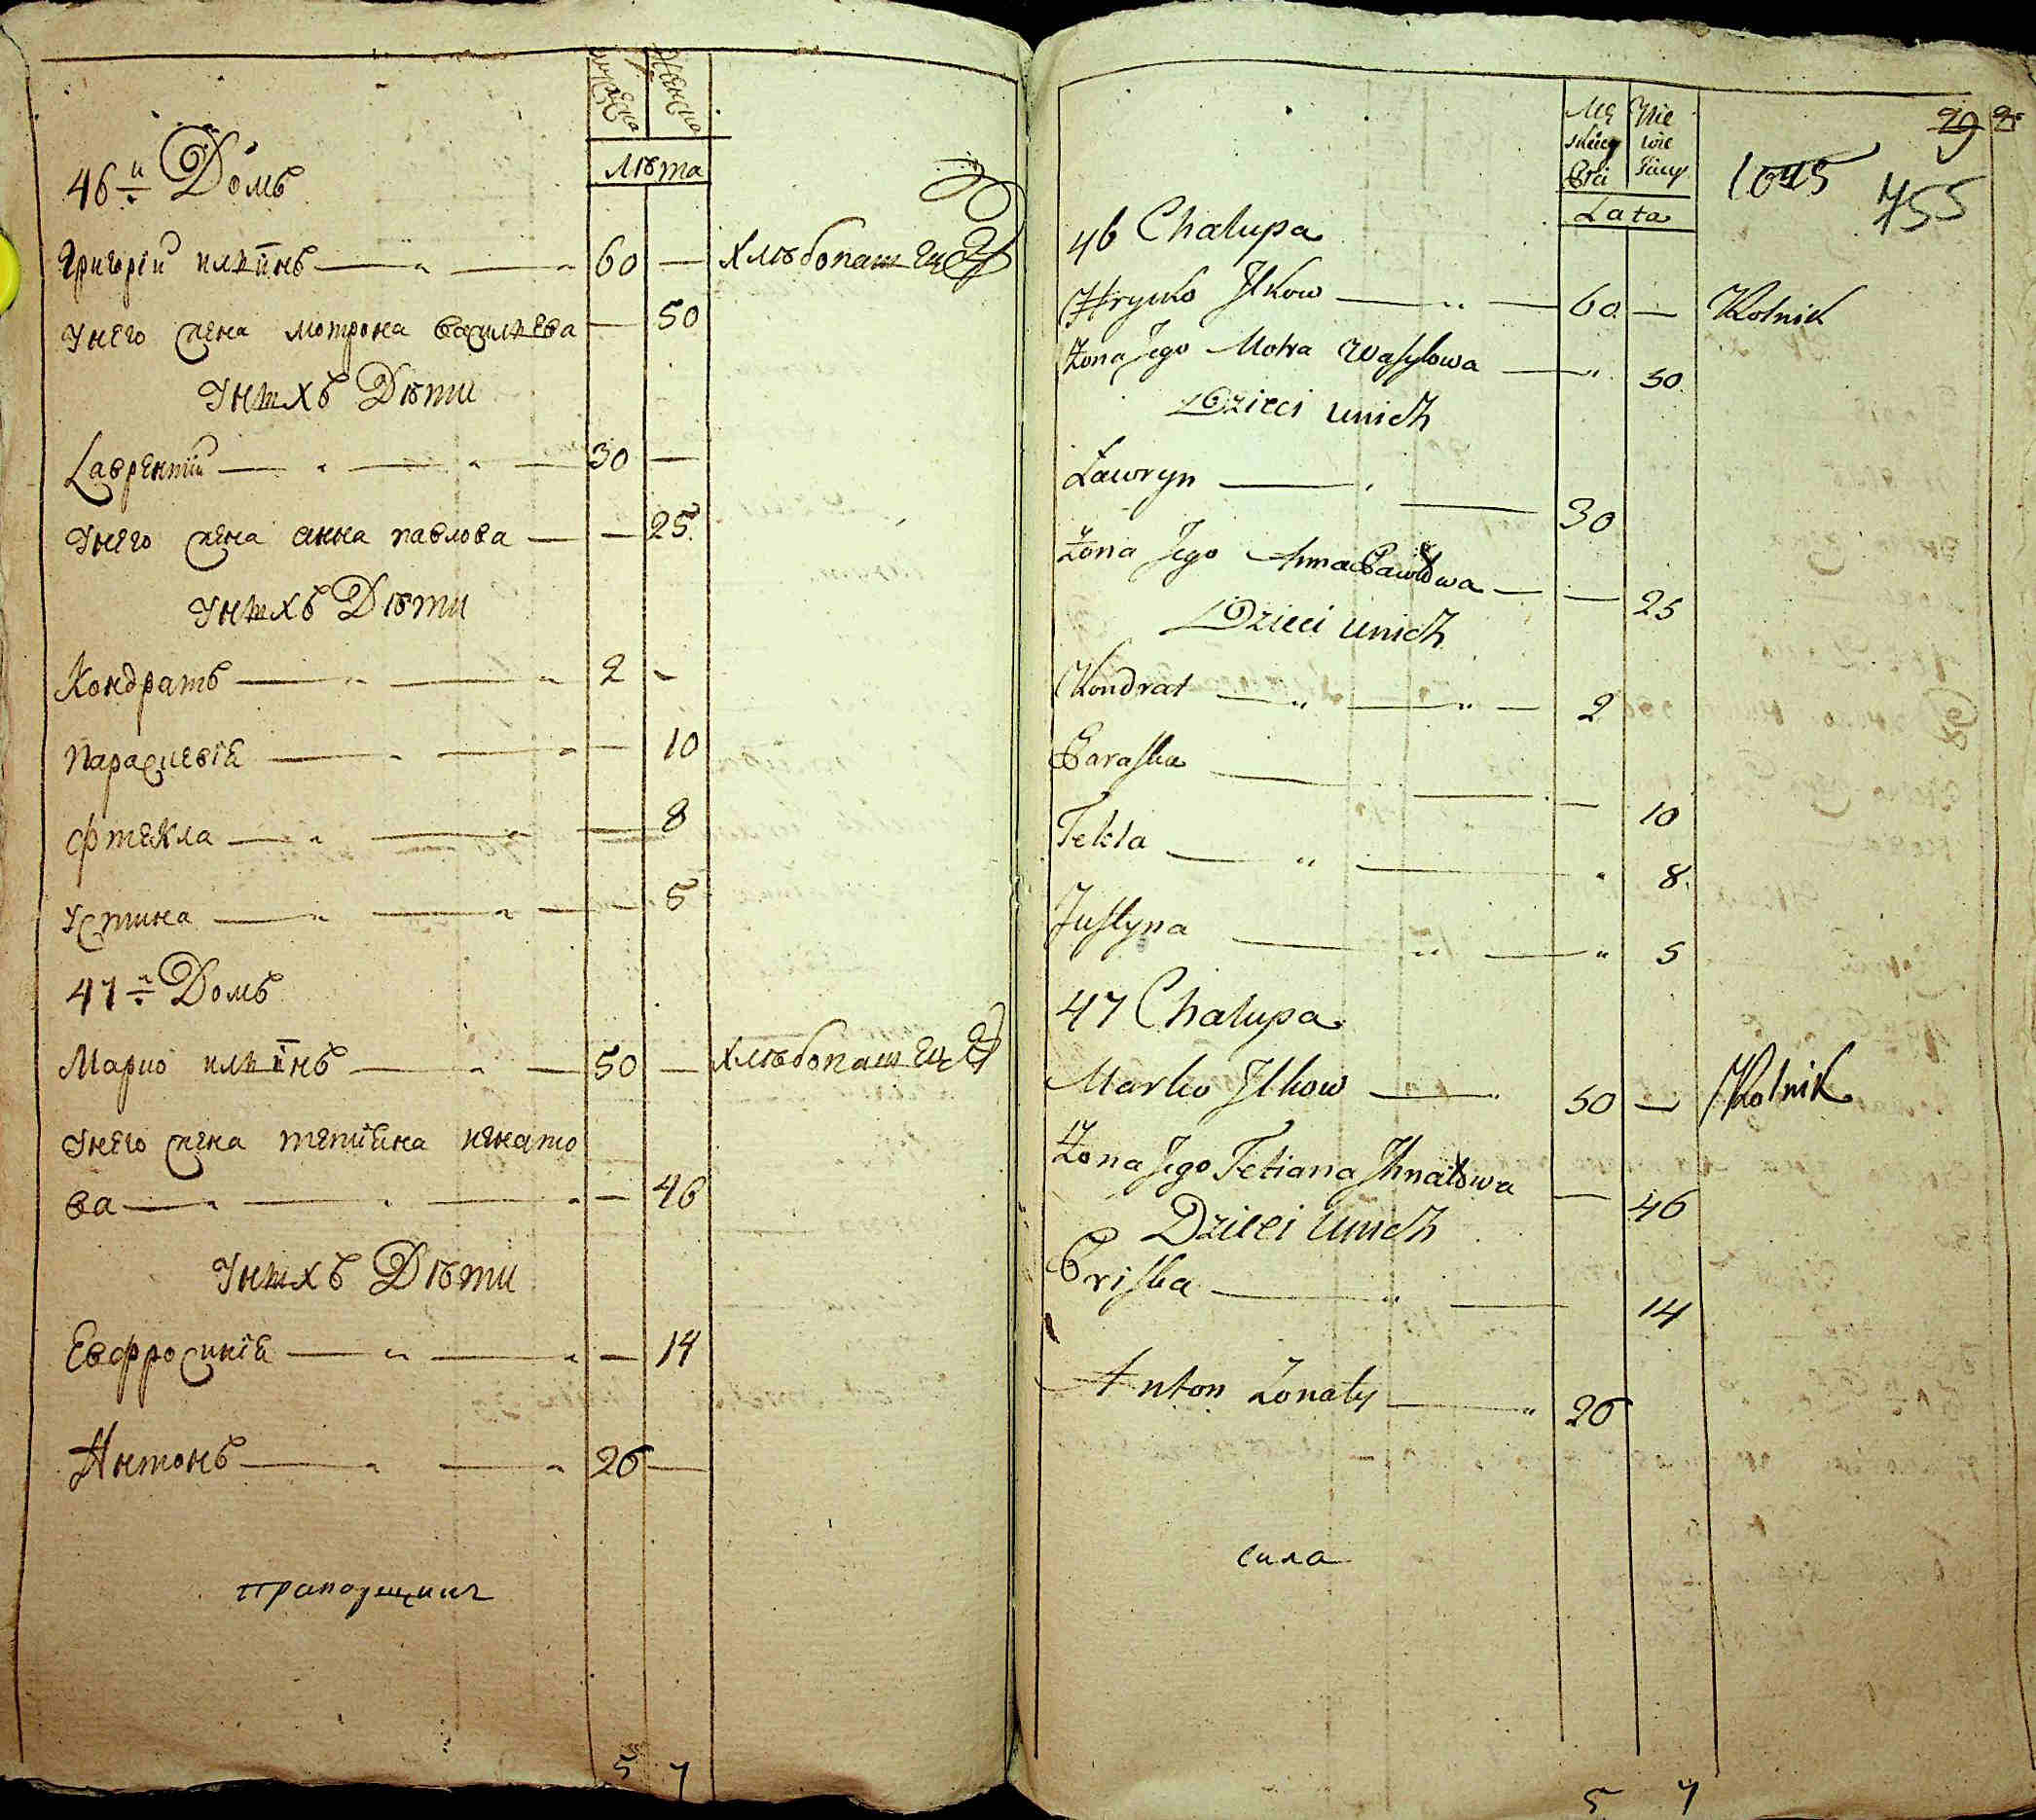 мужеска женска
лѣта
46й Домъ
Григорїй ильїнъ — 60 — хлѣбопашецъ
Унего жена мотрона васильева — 50
Унихъ Дѣти
Лаврентїй — 30 —
Унего жена анна павлова — 25
Унихъ Дѣти
Кондратъ — 2 -
параскевїя — 10
Фтекла — 8
Устина — 5
47й Домъ
Марко ильїнъ — 50 — хлѣбопашецъ
Унего жена тетїяна игнато
ва — 46
Унихъ Дѣти
Евфросинїя — 14
Антонъ — 26 —
прапорщикъ
5 7
Mę Nie
skiey wie
Płci
Lata
29
1045 755
46 Chalupa
Hryńko Ilkow — 60 — Rolnik
Żona Jego Motra Wasylowa — 50
Dzieci unich
Ławryn — 30
Żona Jego Anna Pawłowa — 25
Dzieci unich
Kondrat — 2
Paraska — 10
Tekla — 8
Justyna — 5
47 Chalupa
Marko Ilkow — 50 — Rolnik
Żona Jego Tetiana Ihnatowa — 46
Dzieci unich
Priska — 14
Anton Żonaty — 26
сила
5 7